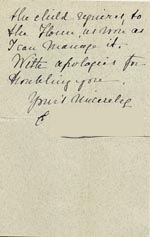 the child                to
the Home as soon as
I can manage it.
With apologies for
troubling you
Yours sincerely